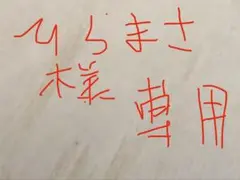 ひろまさ
様専用